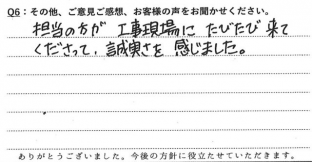 Q6：その他、ご意見ご感想、お客様の声をお聞かせください。
担当の方が 工事現場に たびたび 来て
くださって、誠実さを 感じました。
ありがとうございました。今後の方針に役立たせていただきます。